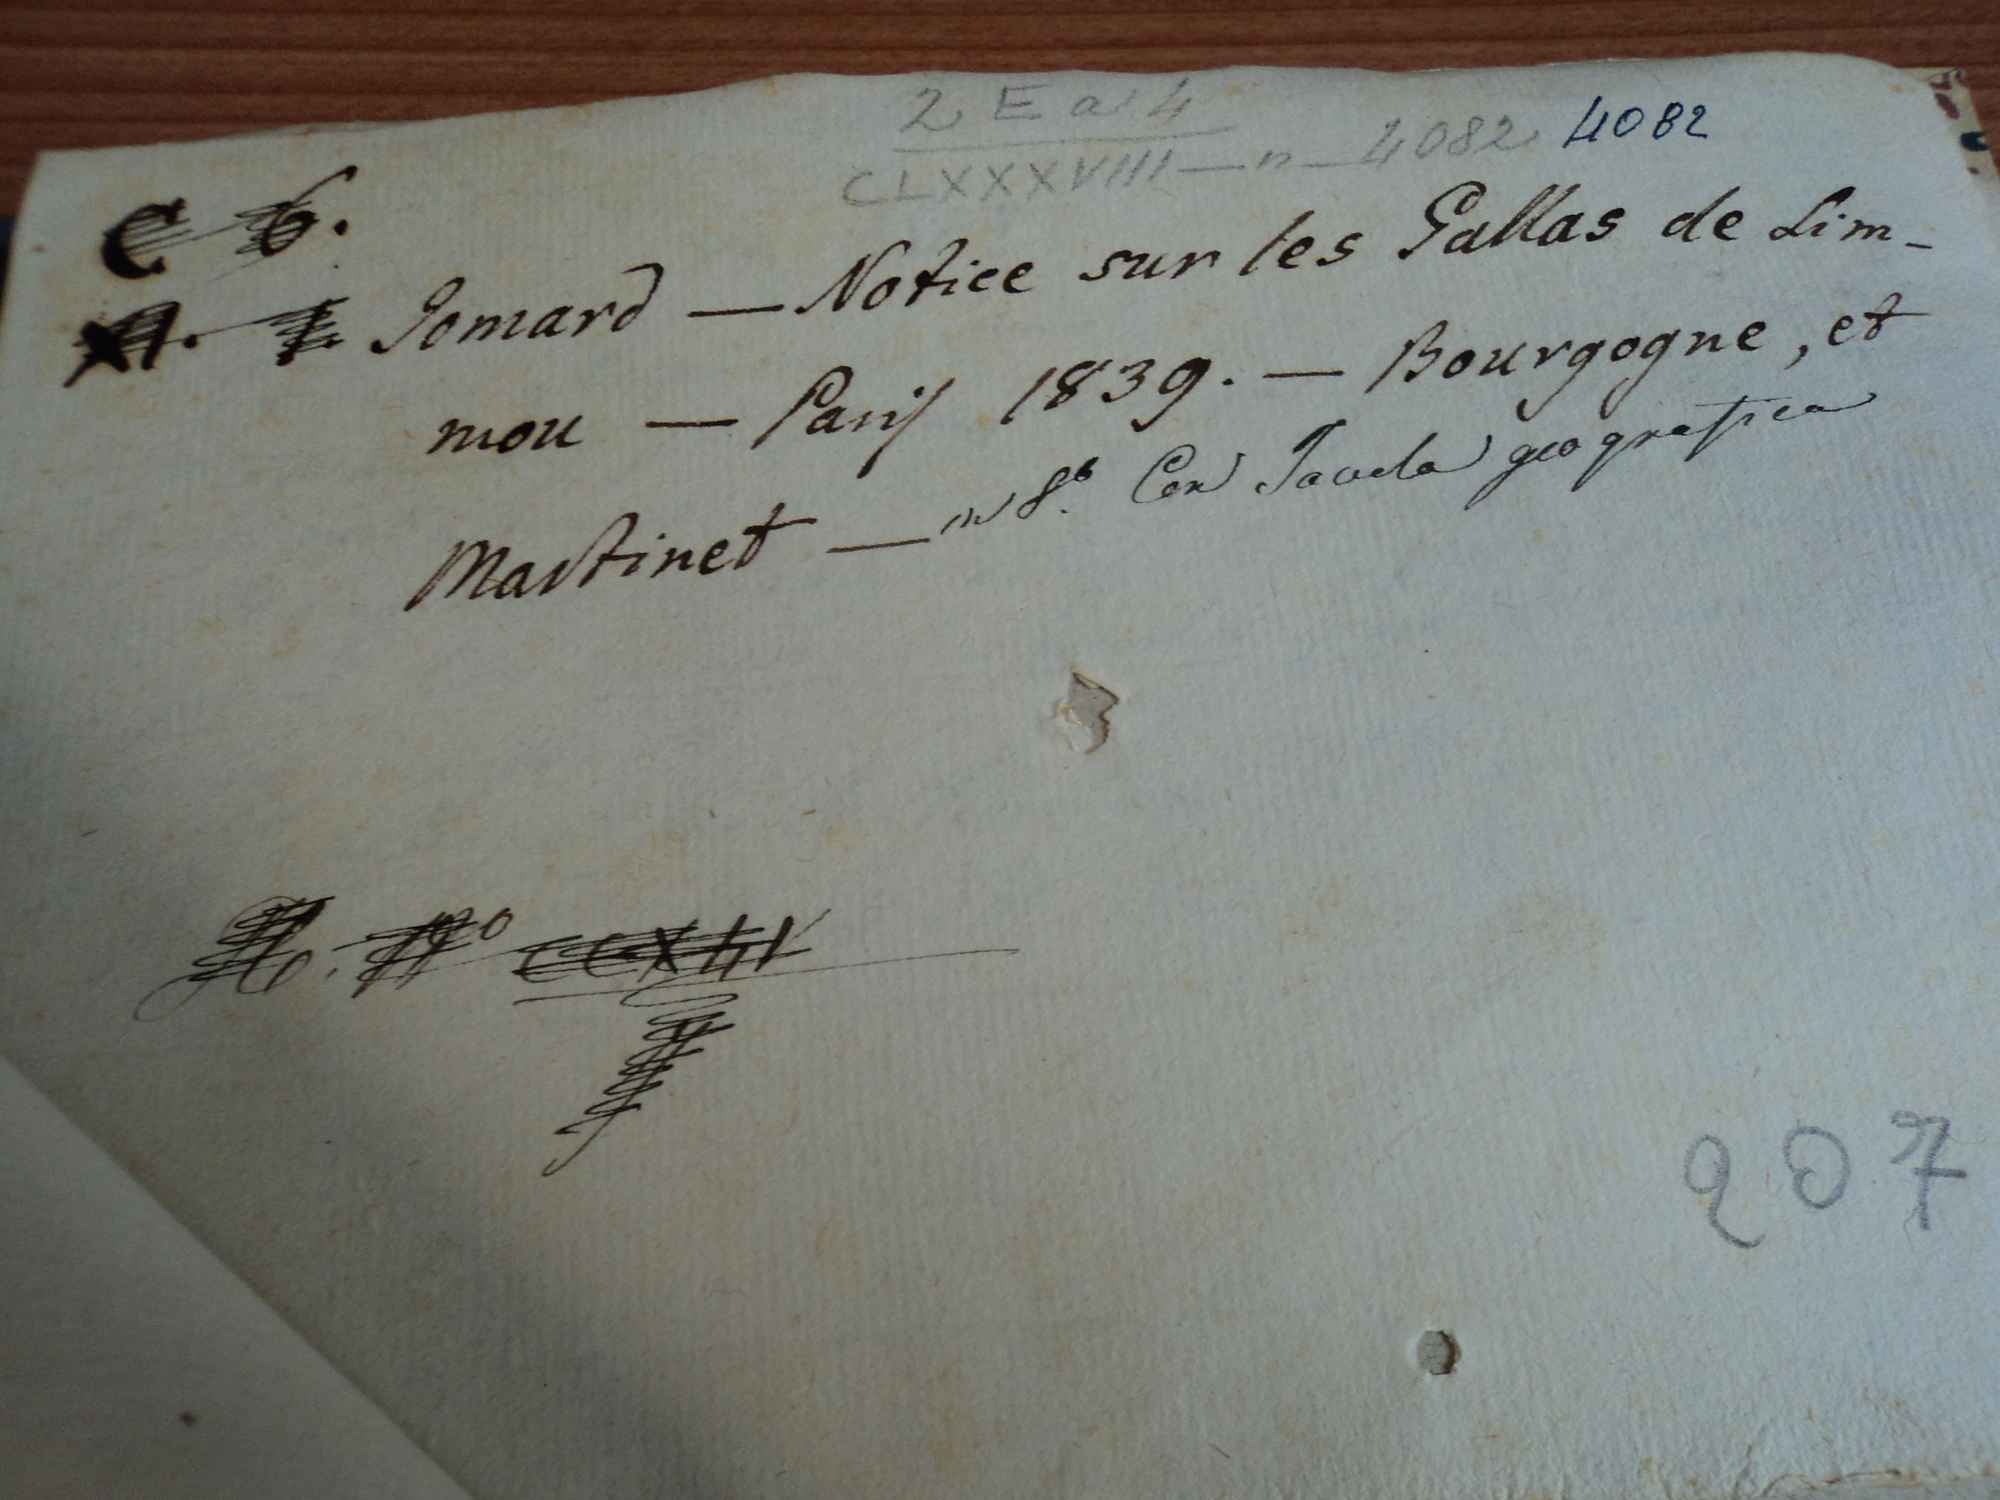 2 E a 4
CLXXXVIII — n — 4082 4082
C 6.
Jomard — Notice sur les Gallas de Lim-
mou — Paris 1839. — Bourgogne, et
Martinet — in 8.º Con Tavola geografica
N.º
207